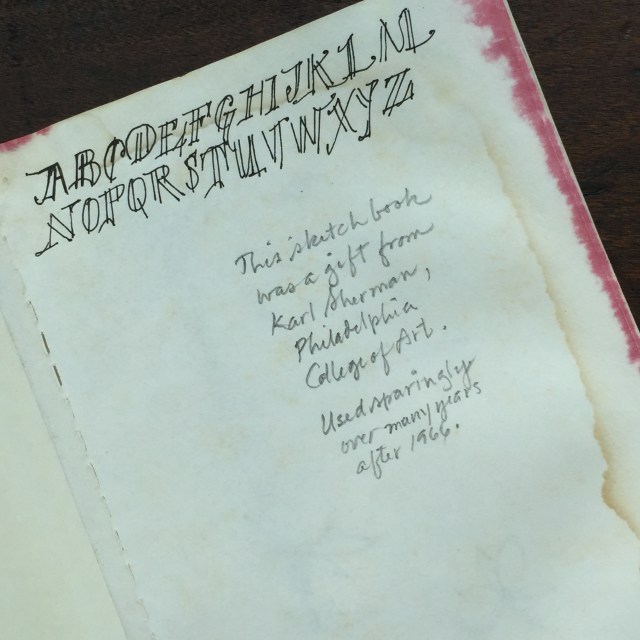 ABCDEFGHIJKLM
NOPQRSTUVWXYZ
This sketch book
was a gift from
Karl Sherman,
Philadelphia
College of Art.
Used sparingly
over many years
after 1966.